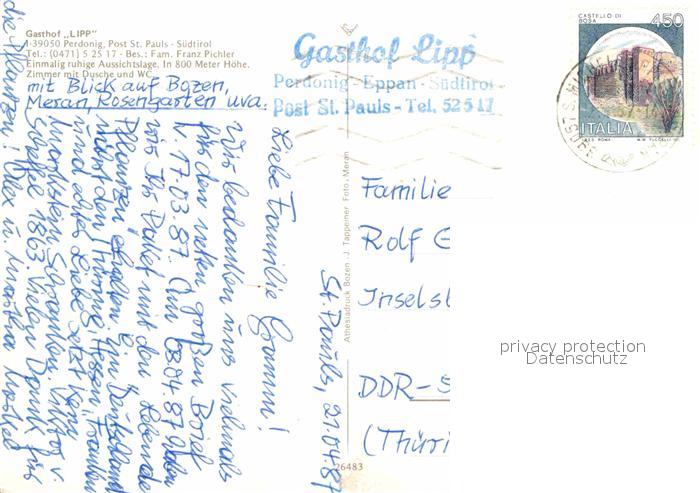 Gasthof „LIPP"
I-39050 Perdonig, Post St. Pauls - Südtirol
Tel.: (0471) 5 25 17 - Bes.: Fam. Franz Pichler
Einmalig ruhige Aussichtslage. In 800 Meter Höhe.
Zimmer mit Dusche und WC
mit Blick auf Bozen,
Meran, Rosengarten uva.
Gasthof Lipp
Perdonig - Eppan - Südtirol
Post St. Pauls - Tel. 52517
CASTELLO DI
ROSA
450
ITALIA
St. Pauls, 21.04.87
Liebe Familie
Wir bedanken uns vielmals
für den netten großen Brief
v. 17.03.87. Am 08.04.87 haben
wir Ihr Paket mit den
Pflanzen erhalten. In Deutschland
nächst den Thüring., Hessen, Franken
und echte Liebe setzt
v.
Scheffel 1863 Vielen Dank für
die Pflanzen! Alex u. Martha
Athesiadruck Bozen J. Tappeiner Foto, Meran
26483
Familie
Rolf G
Inselst
DDR-5
(Thüri
privacy protection
Datenschutz